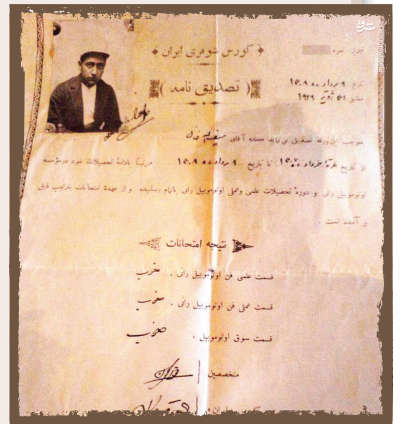 مشرق
﴿ کورس شوفری ایران ﴾
نمره
﴿ تصدیق نامه ﴾
۹ مرداد ۱۳۰۸
مطابق ۳۱ ژویه ۱۹۲۹
بموجب این ورقه تصدیق می نماید مستدعی آقای
از تاریخ غره خرداد تا تاریخ ۹ مرداد ۱۳۰۸ مرتباً تحصیلات خود در مؤسسه
اوتوموبیل رانی و دورهٔ تحصیلات علمی و عملی اوتوموبیل رانی باتمام رسانیده و از عهدهٔ امتحانات بترتیب ذیل
بر آمده است .
نتیجه امتحانات
قسمت علمی فن اوتوموبیل رانی . خوب
قسمت عملی فن اوتوموبیل رانی . خوب
قسمت سوق اوتوموبیل . خوب
متخصصین